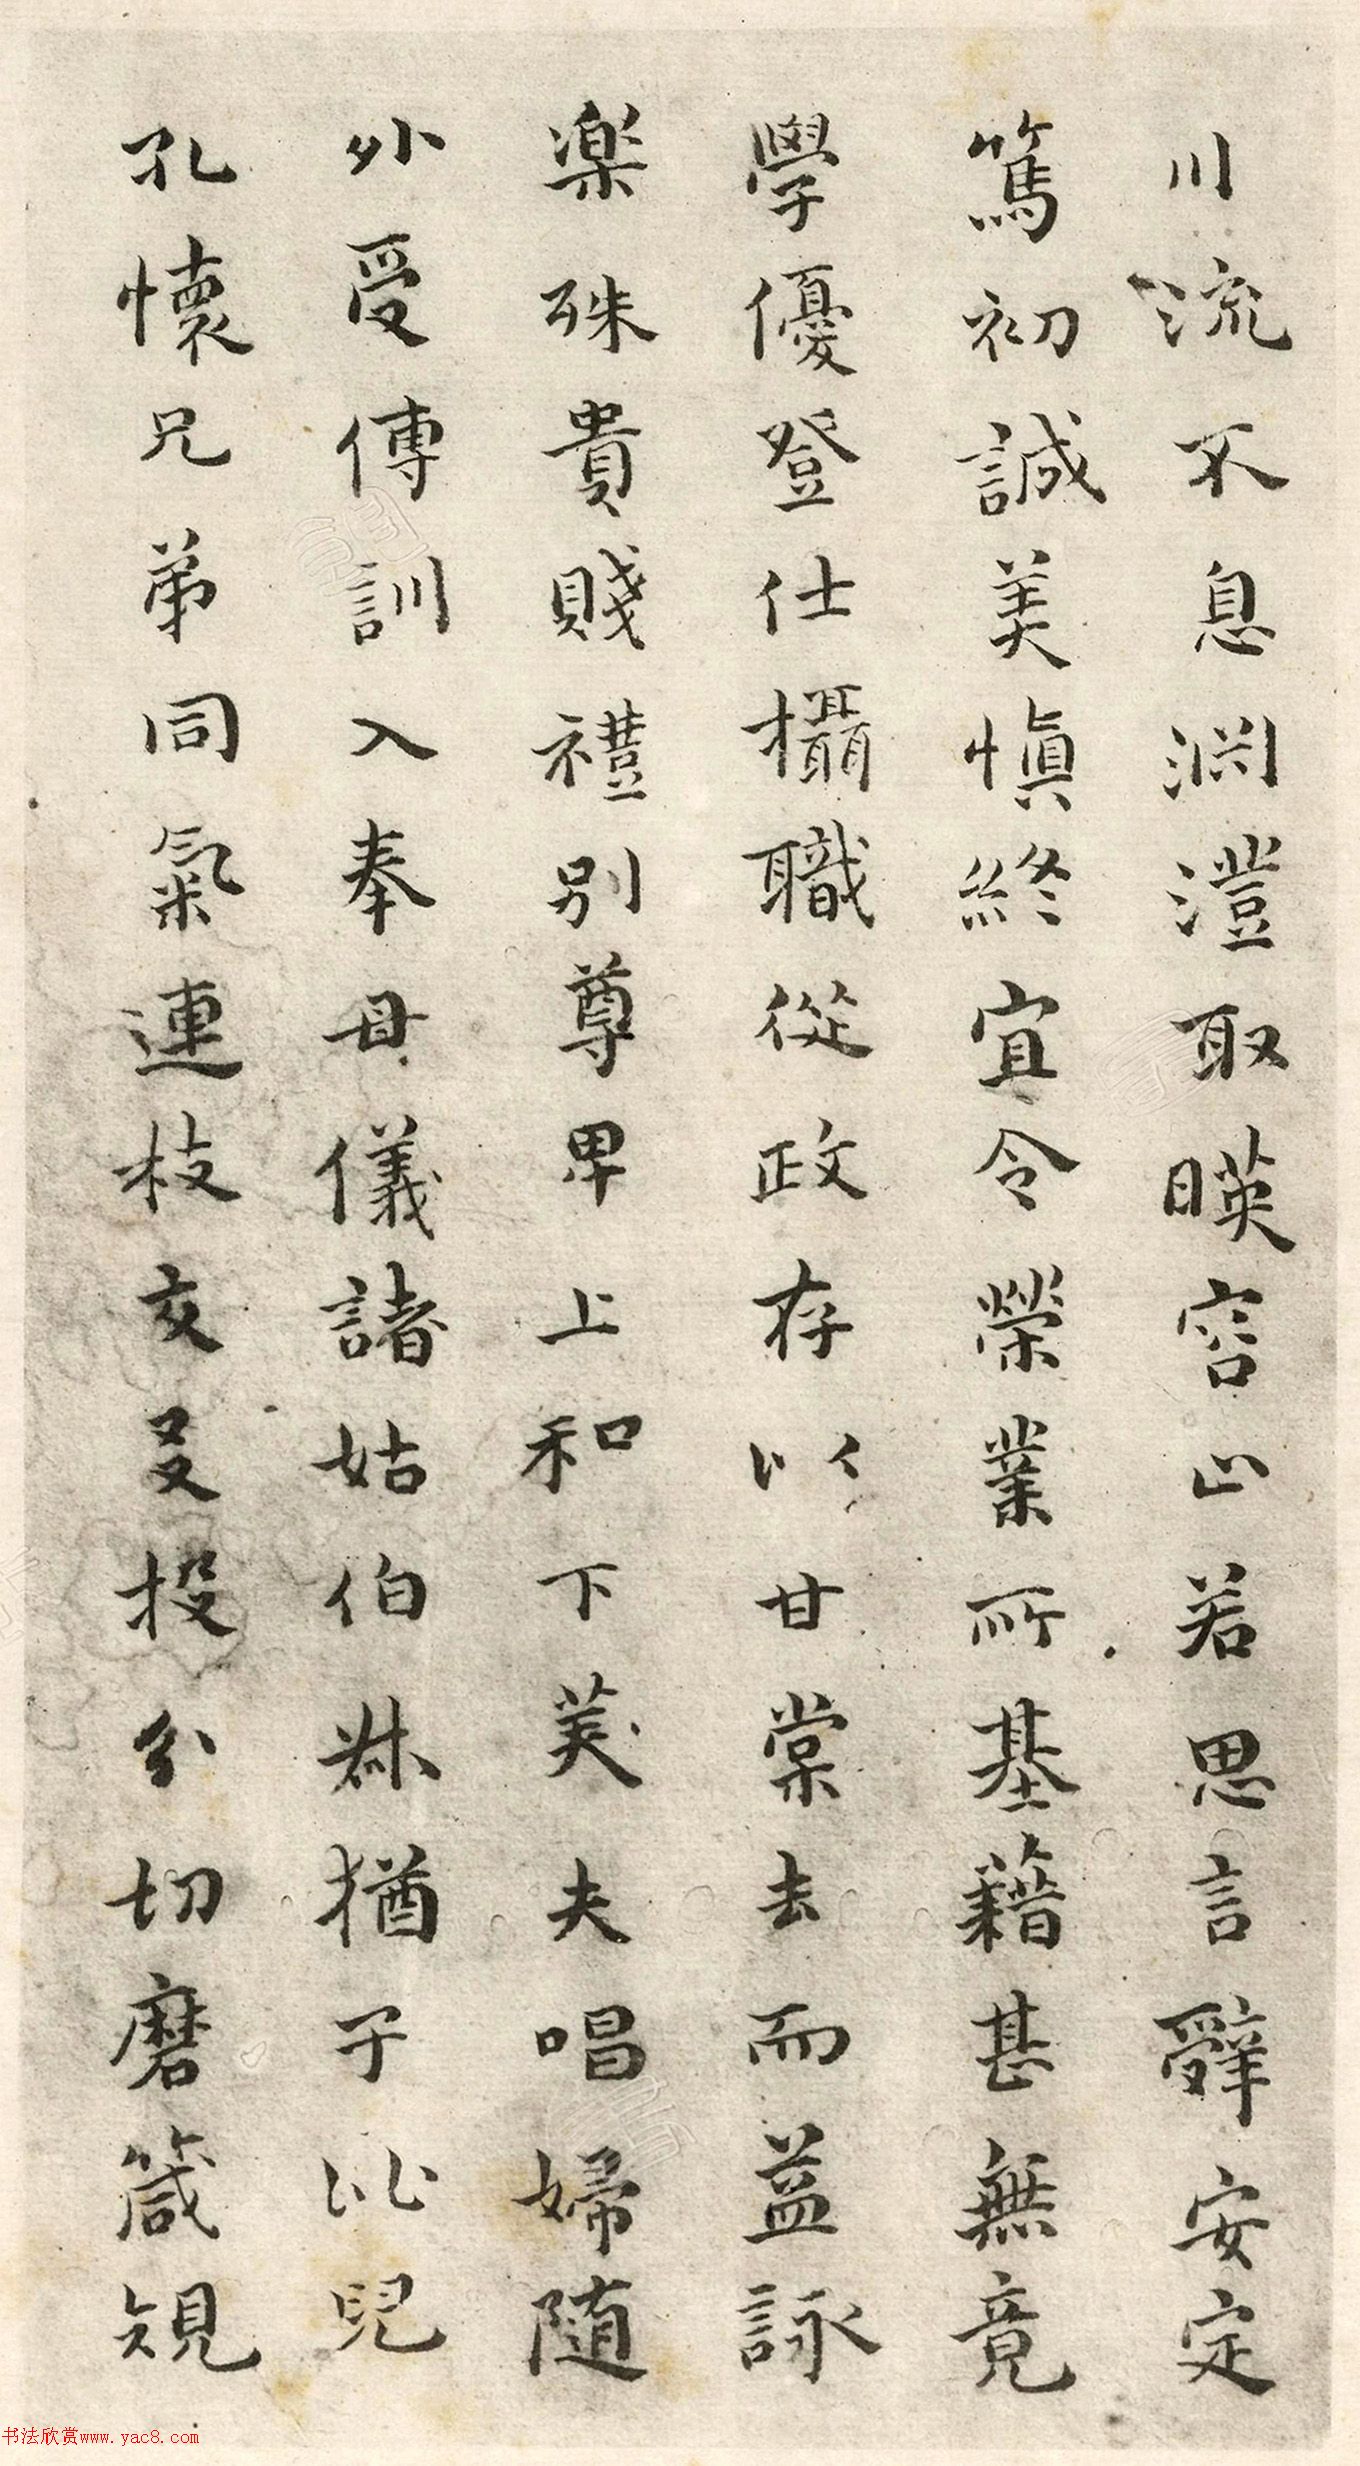 川流不息渊澄取暎容止若思言辭安定
篤初誠美慎終宜令榮業所基籍甚無竟
學優登仕攝職從政存以甘棠去而益詠
樂殊貴賤禮別尊卑上和下美夫唱婦随
外受傅訓入奉母儀諸姑伯叔猶子比兒
孔懷兄弟同氣連枝交友投分切磨箴規
书法欣赏www.yac8.com